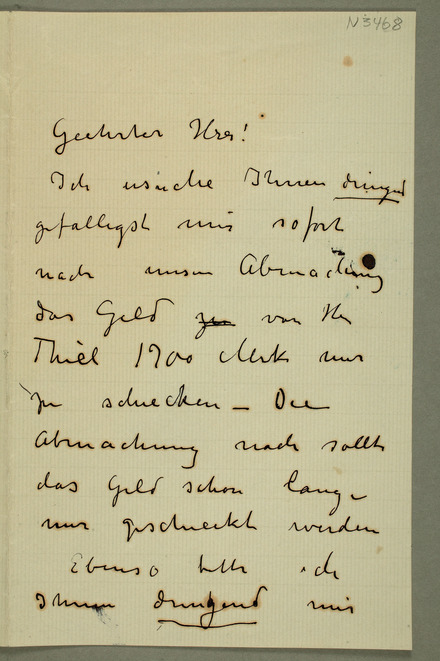 N 3468
Geehrter Herr!
Ich ersuche Ihnen dringend
gefälligst mir sofort
nach unsern Abmachung
das Geld von Hr
Thiel 1700 Mark mir
zu schicken – Die
Abmachung nach sollte
das Geld schon lange
mir geschickt werden
Ebenso bitte ich
Ihnen dringend mir